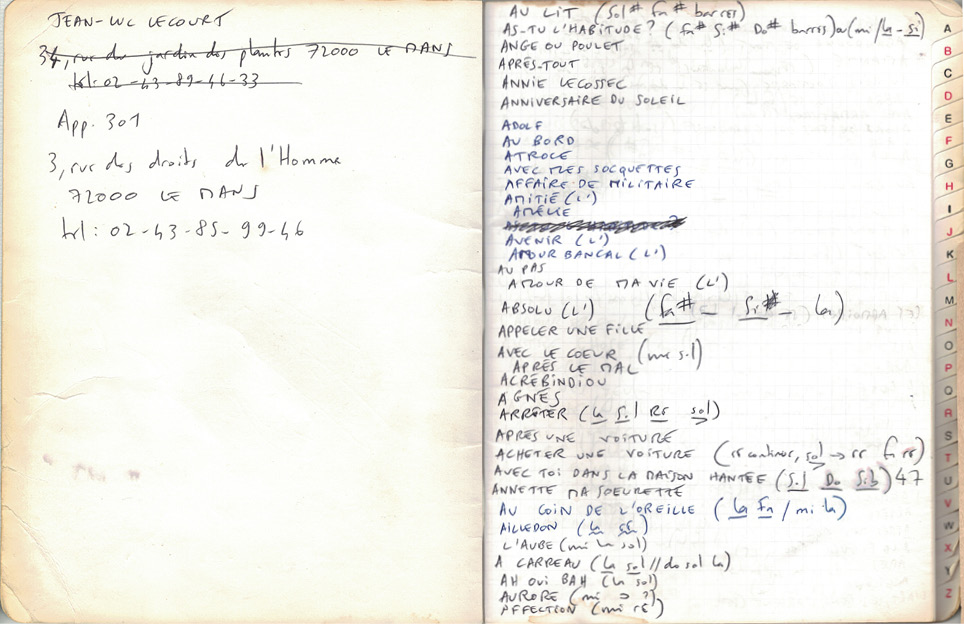 JEAN-LUC LECOURT
34, rue du jardin des plantes 72000 LE MANS
tel: 02-43-89-46-33
App. 301
3, rue des droits de l'Homme
72000 LE MANS
tel: 02-43-85-99-46
AU LIT (Sol# Fa# barres)
AS-TU L'HABITUDE? (Fa# Si# Do# barres) ou (mi/La-Si)
ANGE OU POULET
APRÈS-TOUT
ANNIE LECOSSEC
ANNIVERSAIRE DU SOLEIL
ADOLF
AU BORD
ATROCE
AVEC MES SOCQUETTES
AFFAIRE DE MILITAIRE
AMITIÉ (L')
AMÉLIE
AVENIR (L')
AMOUR BANCAL (L')
AU PAS
AMOUR DE MA VIE (L')
ABSOLU (L') (Fa# - Si# - La)
APPELER UNE FILLE
AVEC LE COEUR (mi sol)
APRÈS LE MAL
ACRÉBINDIOU
AGNÈS
ARRÊTER (La Sol Ré sol)
APRÈS UNE VOITURE
ACHETER UNE VOITURE (
AVEC TOI DANS LA MAISON HANTÉE (Sol Do Sib) 47
ANNETTE MA SOEURETTE
AU COIN DE L'OREILLE (La Fa / mi la)
AILLEDON (La
L'AUBE (mi la sol)
A CARREAU (La sol // do sol la)
AH OUI BAH (La sol)
AURORE (mi → ?)
AFFECTION (mi ré)
A
B
C
D
E
F
G
H
I
J
K
L
M
N
O
P
Q
R
S
T
U
V
W
X
Y
Z